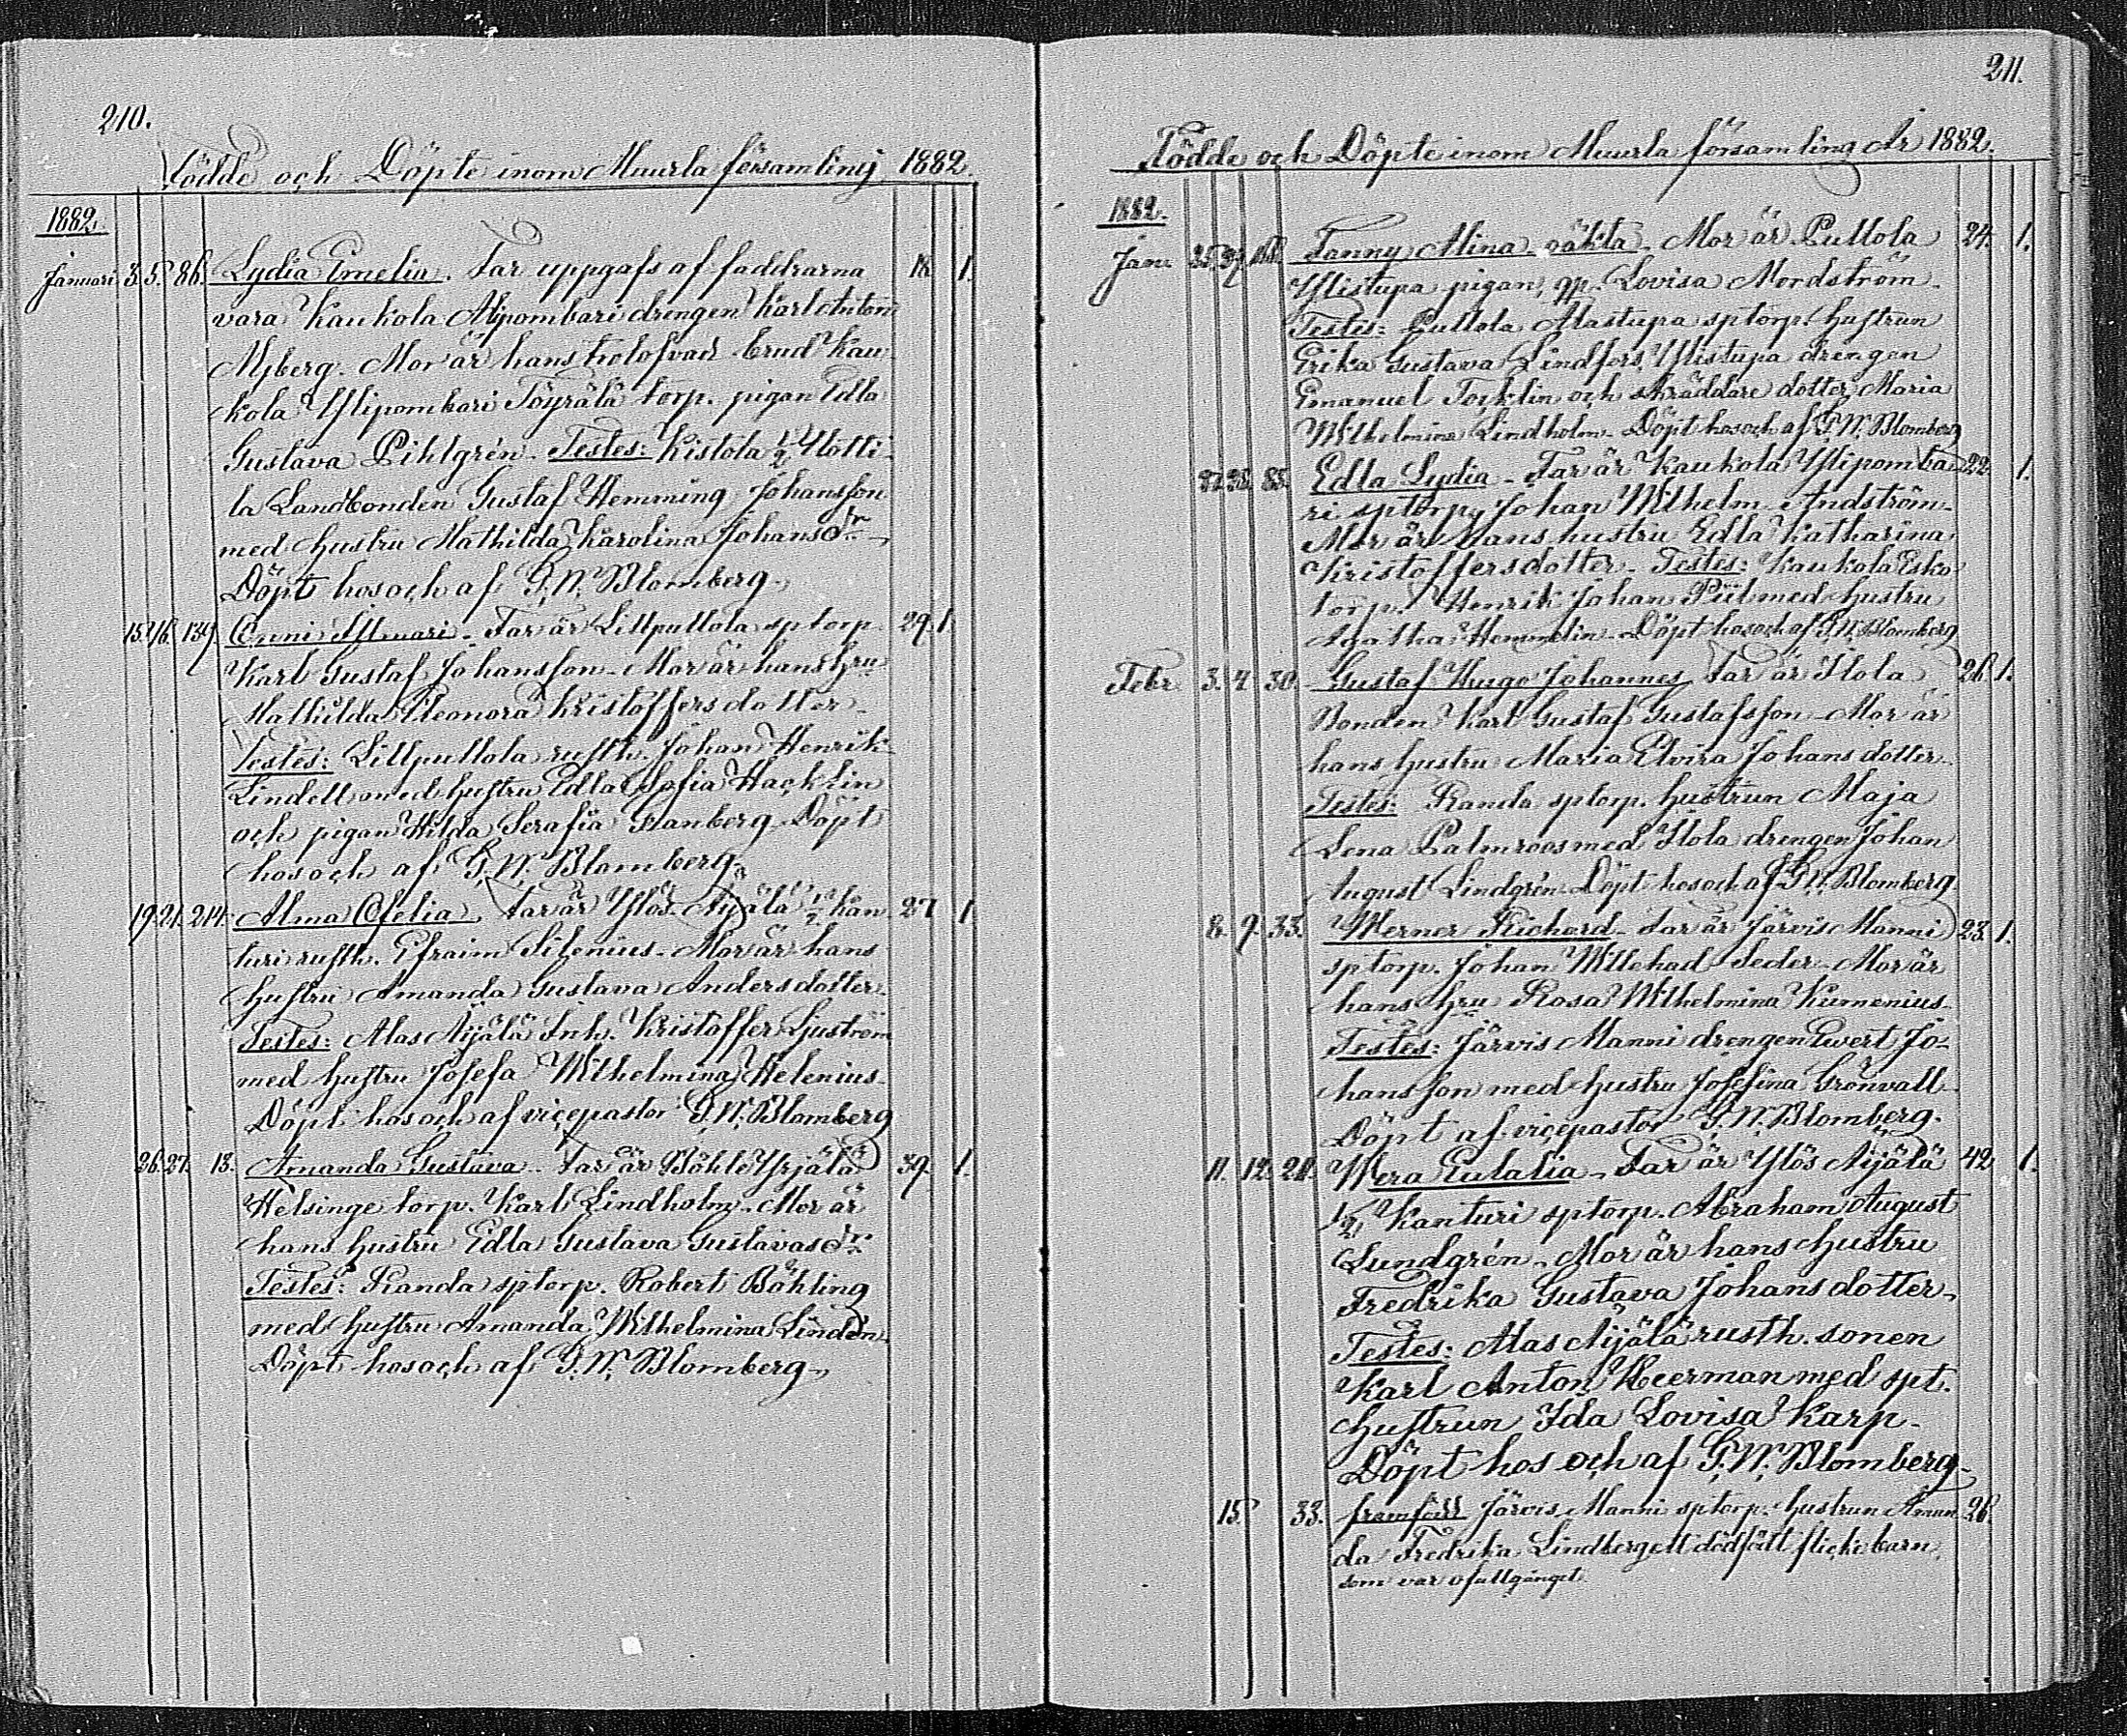 210.
Födde och Döpte inom Muurla församling 1882.
1882.
Januari 3. 5. 86. Lydia Emelia. Far uppgafs af faddrarna 18. 1.
vara Kaukola Alipombari drengen Karl Anton
Myberg. Mor är hans trolofvad brud Kau-
kola Ylipombari Töyrälä torp. pigan Edla
Gustava Pihlgrén. Testes: Kistola 1/2
la Landbonden Gustaf Hemming Johansson
med hustru Mathilda Karolina Johansdr.
Döpt hos och af G.W. Blomberg.
15. 16. 139. Onni Ilmari. Far är Lillpullola sptorp. 29. 1.
Karl Gustaf Johansson. Mor är hans hru
Mathilda Eleonora Kristoffersdotter.
Testes: Lillpullola rusth. Johan Henrik
Lindell med hustru Edla Sofia Hacklin
och pigan Hilda Serafia Granberg. Döpt
hos och af G.W. Blomberg.
19. 21. 214. Alma Ofelia. Far är Ylös Äijälä 1/2 Kan- 27 1
turi rusth. Efraim Silenius. Mor är hans
hustru Amanda Gustava Andersdotter.
Testes: Alas Äijälä Inh. Kristoffer Ljuström
med hustru Josefa Wilhelmina Helenius.
Döpt hos och af vicepastor G.W. Blomberg
26. 27. 13. Amanda Gustava. Far är Böhle Yrjälä 39. 1.
Helsinge torp. Karl Lindholm. Mor är
hans hustru Edla Gustava Gustavasdr
Testes: Randa sptorp. Robert Böhling
med hustru Amanda Wilhelmina Lindén.
Döpt hos och af G.W. Blomberg.
211.
Födde och Döpte inom Muurla församling År 1882.
1882.
Janu. 25. 27. Fanny Alina oäkta. Mor är Pullola 24. 1.
Ylistupa pigan, qp. Lovisa Nordström.
Testes: Pullola Alastupa sptorp. hustrun
Erika Gustava Lindfors, Ylistupa drengen
Emanuel Tocklin och skräddare dotter Maria
Wilhelmina Lindholm. Döpt hos och af G.W. Blomberg
27. 28. 85. Edla Lydia. Far är Kaukola Ylipomba- 22. 1.
ri sptorp. Johan Wilhelm Andström.
Mor är hans hustru Edla Katharina
Kristoffersdotter. Testes: Kaukola Esko
torp. Henrik Johan Piil med hustru
Agatha Hemmelin. Döpt hos och af G.W. Blomberg
Febr. 3. 4. 30. Gustaf Hugo Johannes. Far är Ilola 26. 1.
Bonden Karl Gustaf Gustafsson. Mor är
hans hustru Maria Elvira Johansdotter.
Testes: Randa sptorp. hustrun Maja
Lena Palmroos med Ilola drengen Johan
August Lindgrén. Döpt hos och af G.W. Blomberg.
8. 9. 33. Werner Richard. Far är Järvis Manni 23. 1.
sptorp. Johan Willehad Seder. Mor är
hans hru Rosa Wilhelmina Kumenius.
Testes: Järvis Manni drengen Ewert Jo-
hansson med hustru Josefina Grönvall.
Döpt af vicepastor G.W. Blomberg.
11. 12. 211. Wera Eulalia. Far är Ylös Äijälä 42. 1.
1/2 Kanturi sptorp. Abraham August
Lundgrén. Mor är hans hustru
Fredrika Gustava Johansdotter.
Testes: Alas Äijälä rusth. sonen
Karl Anton Heerman med spt.
hustrun Ida Lovisa Karp.
Döpt hos och af G.W. Blomberg.
15. 33. framfödt Järvis Manni sptorp. hustrun Aman- 26.
da Fredrika Lindberg ett dödfödt flickebarn,
som var ofullgånget.